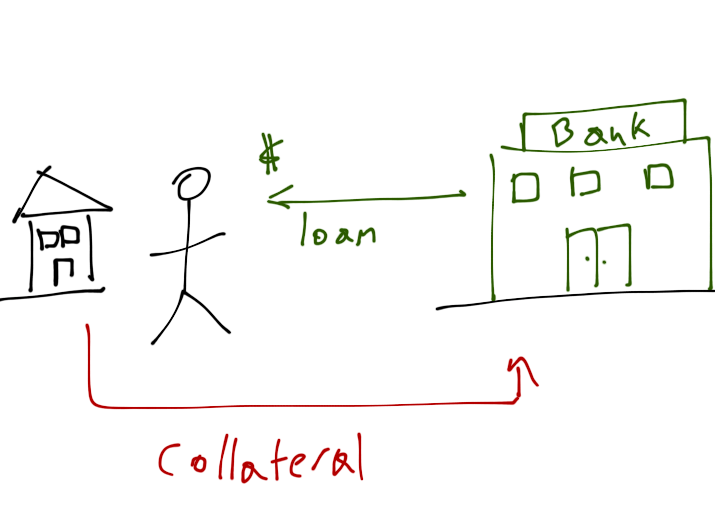 Bank
$
loan
Collateral